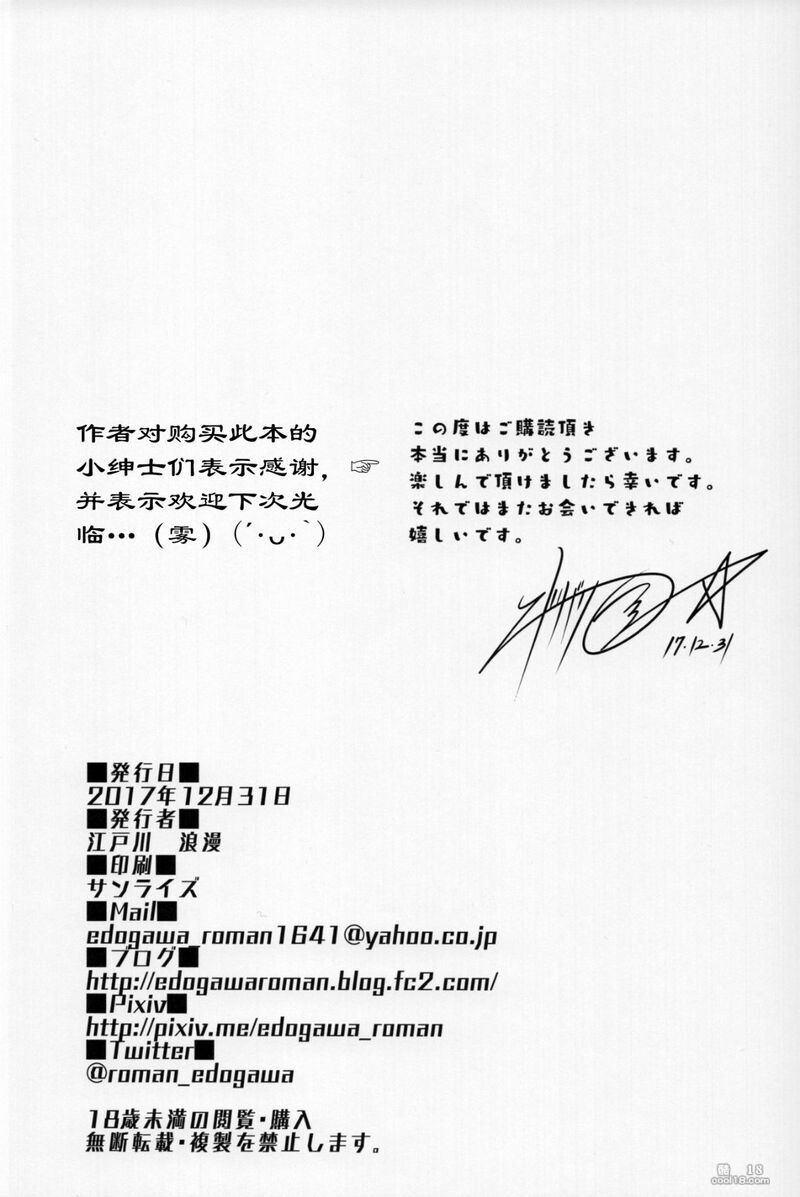 作者对购买此本的
小绅士们表示感谢，
并表示欢迎下次光
临…（雾）（´·ᴗ·`）
☞
この度はご購読頂き
本当にありがとうございます。
楽しんで頂けましたら幸いです。
それではまたお会いできれば
嬉しいです。
17.12.31
■発行日■
2017年12月31日
■発行者■
江戸川　浪漫
■印刷■
サンライズ
■Mail■
edogawa_roman1641@yahoo.co.jp
■ブログ■
http://edogawaroman.blog.fc2.com/
■Pixiv■
http://pixiv.me/edogawa_roman
■Twitter■
@roman_edogawa
18歳未満の閲覧・購入
無断転載・複製を禁止します。
酷 18
cool18.com